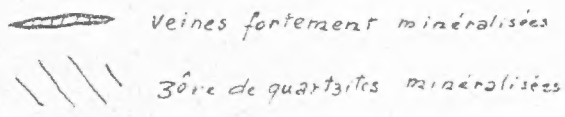 Veines fortement minéralisées
Zône de quartzites minéralisées